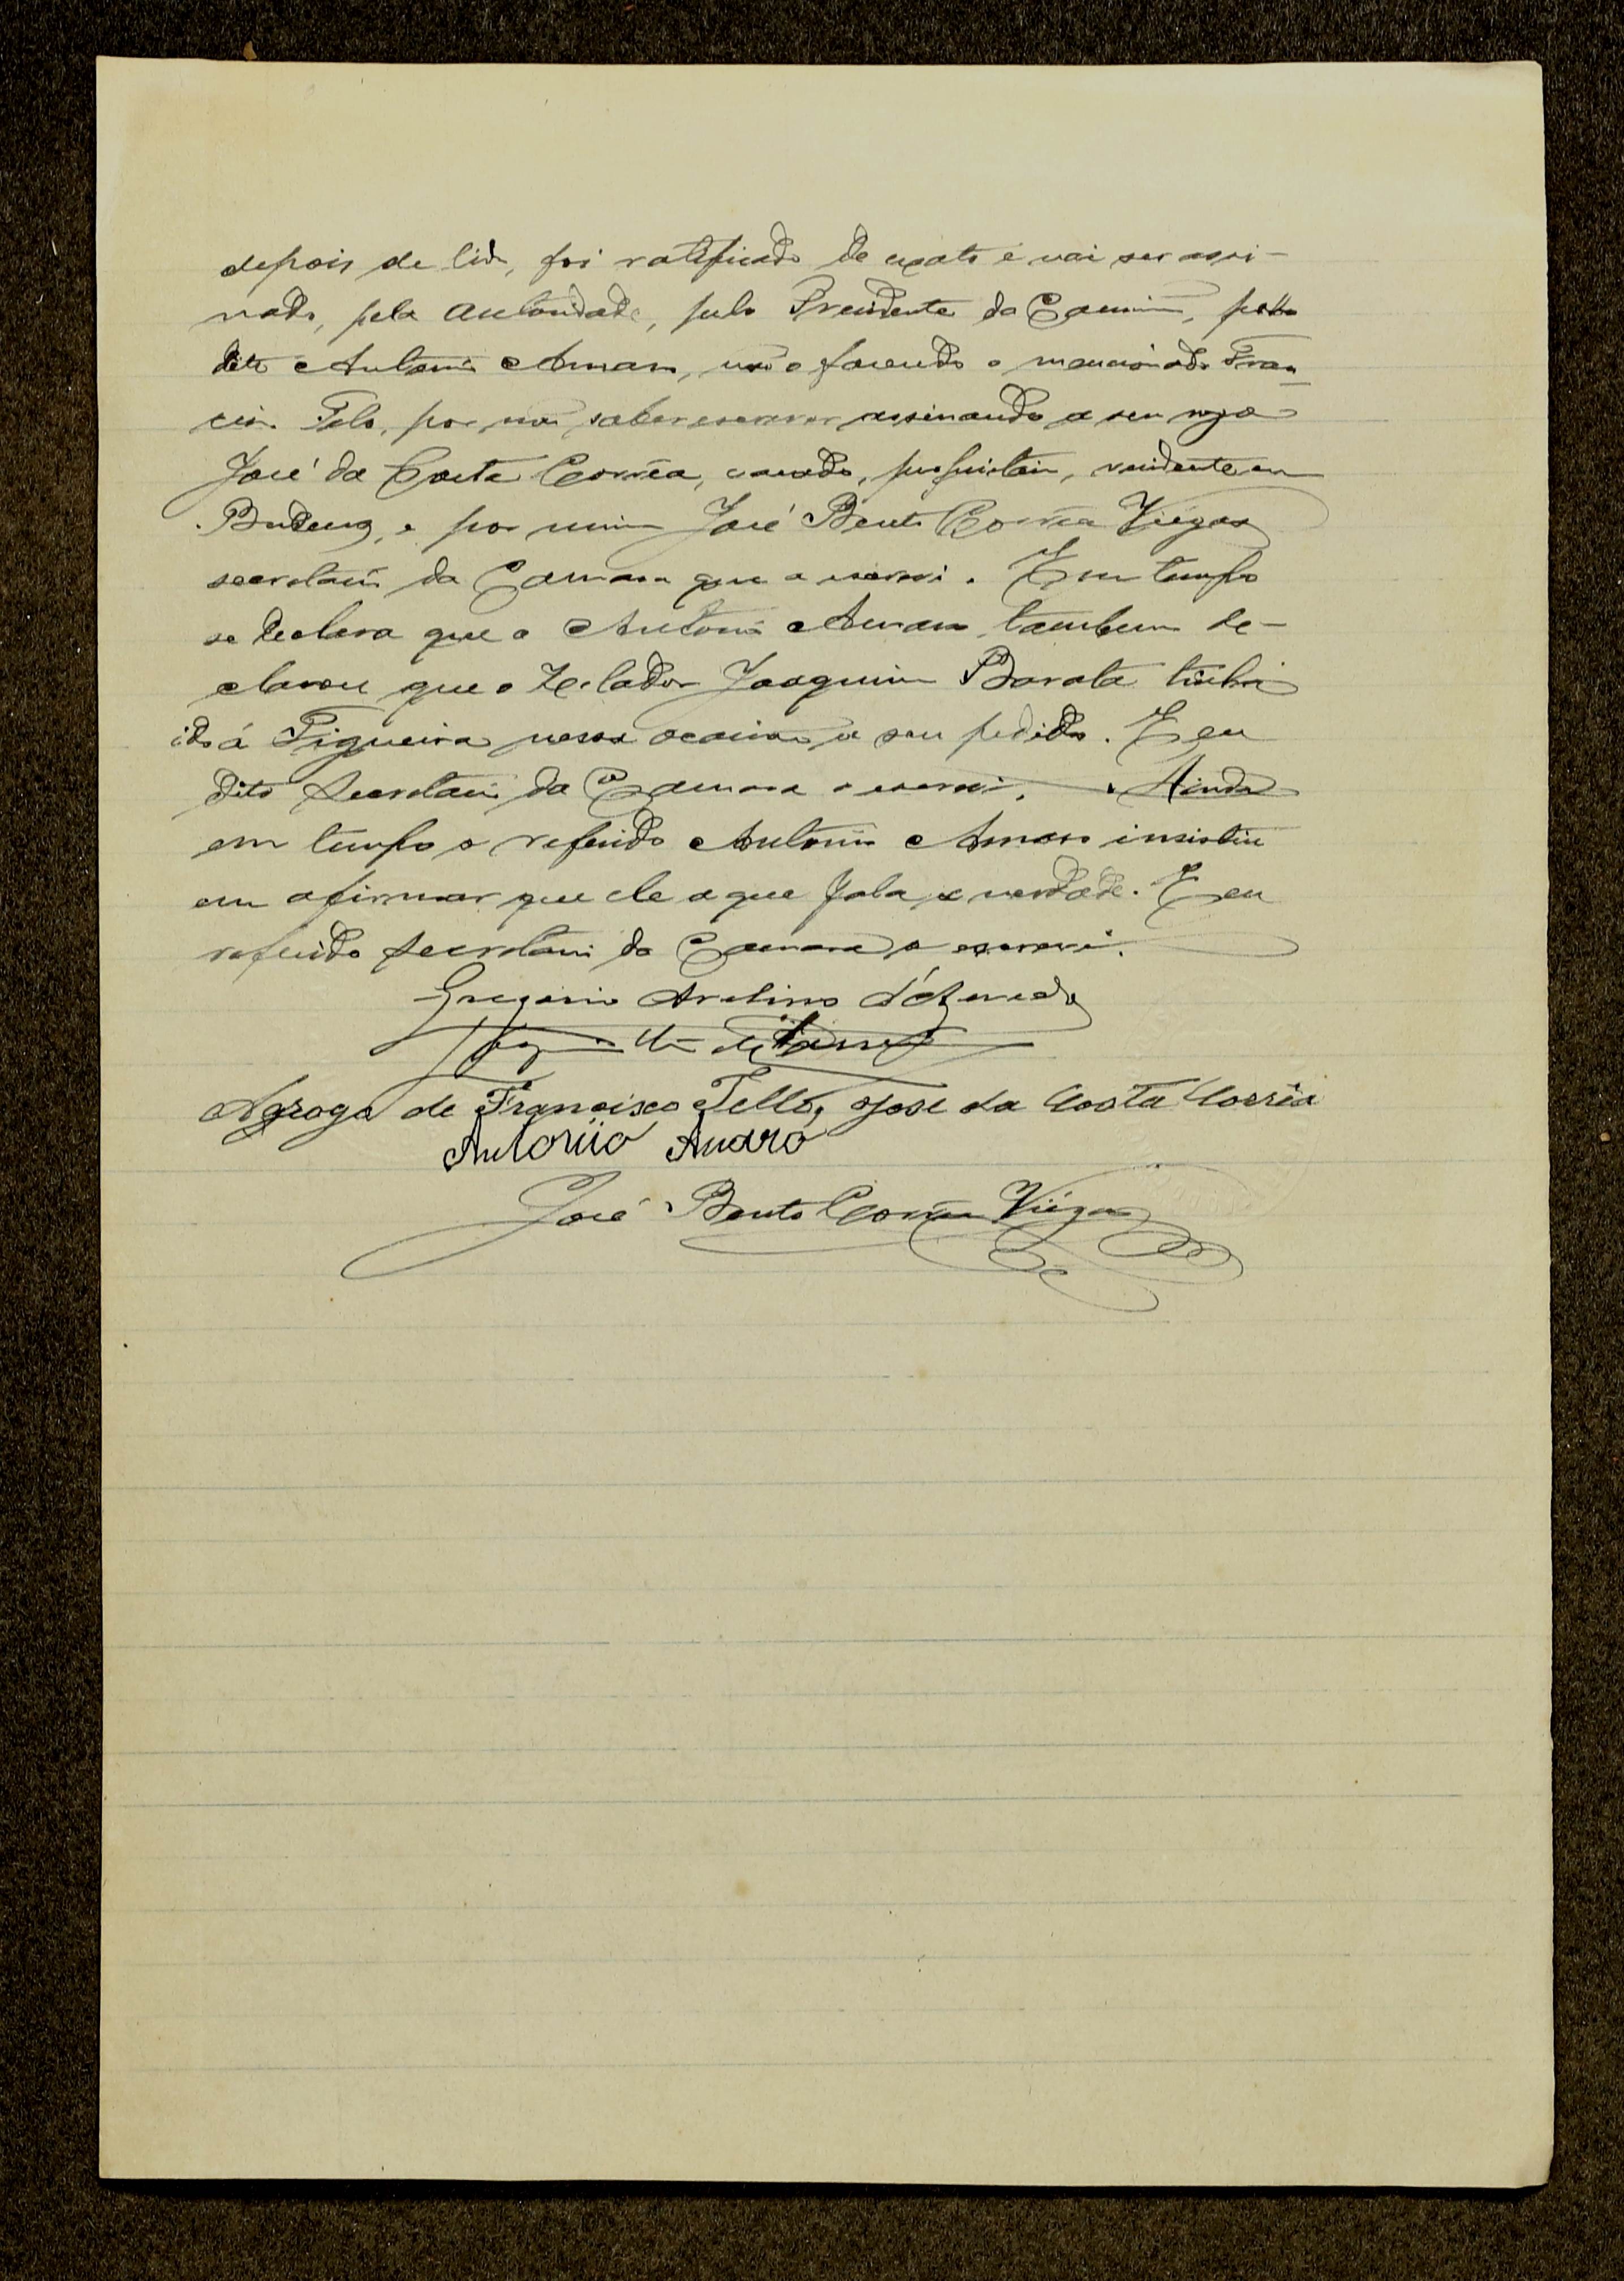 depois de lido, foi ratificado de exato e vai ser assi-
nado, pela Autoridade, pelo Presidente da Camara, pelo
dito Antonio Amaro, não o fazendo o mencionado Fran-
cisco Telo, por não saber escrever assinando a seu rogo
José da Costa Corrêa, casado, proprietario, residente em
Budens, e por mim José Bento Corrêa Viegas
secretario da Camara que o escrevi. Em tempo
se declara que o Antonio Amaro tambem de-
clarou que o Zelador Joaquim Barata tinha
ido á Figueira nessa ocasião a seu pedido. E eu
dito Secretario da Camara o escrevi. Ainda
em tempo o referido Antonio Amaro insistiu
em afirmar que ele a que fala a verdade. E eu
referido Secretario da Camara o escrevi.
Gregorio Avelino d'Azevedo
A grogo de Francisco Tello, José da Costa Corrêa
Antonio Amaro
José Bento Corrêa Viégas